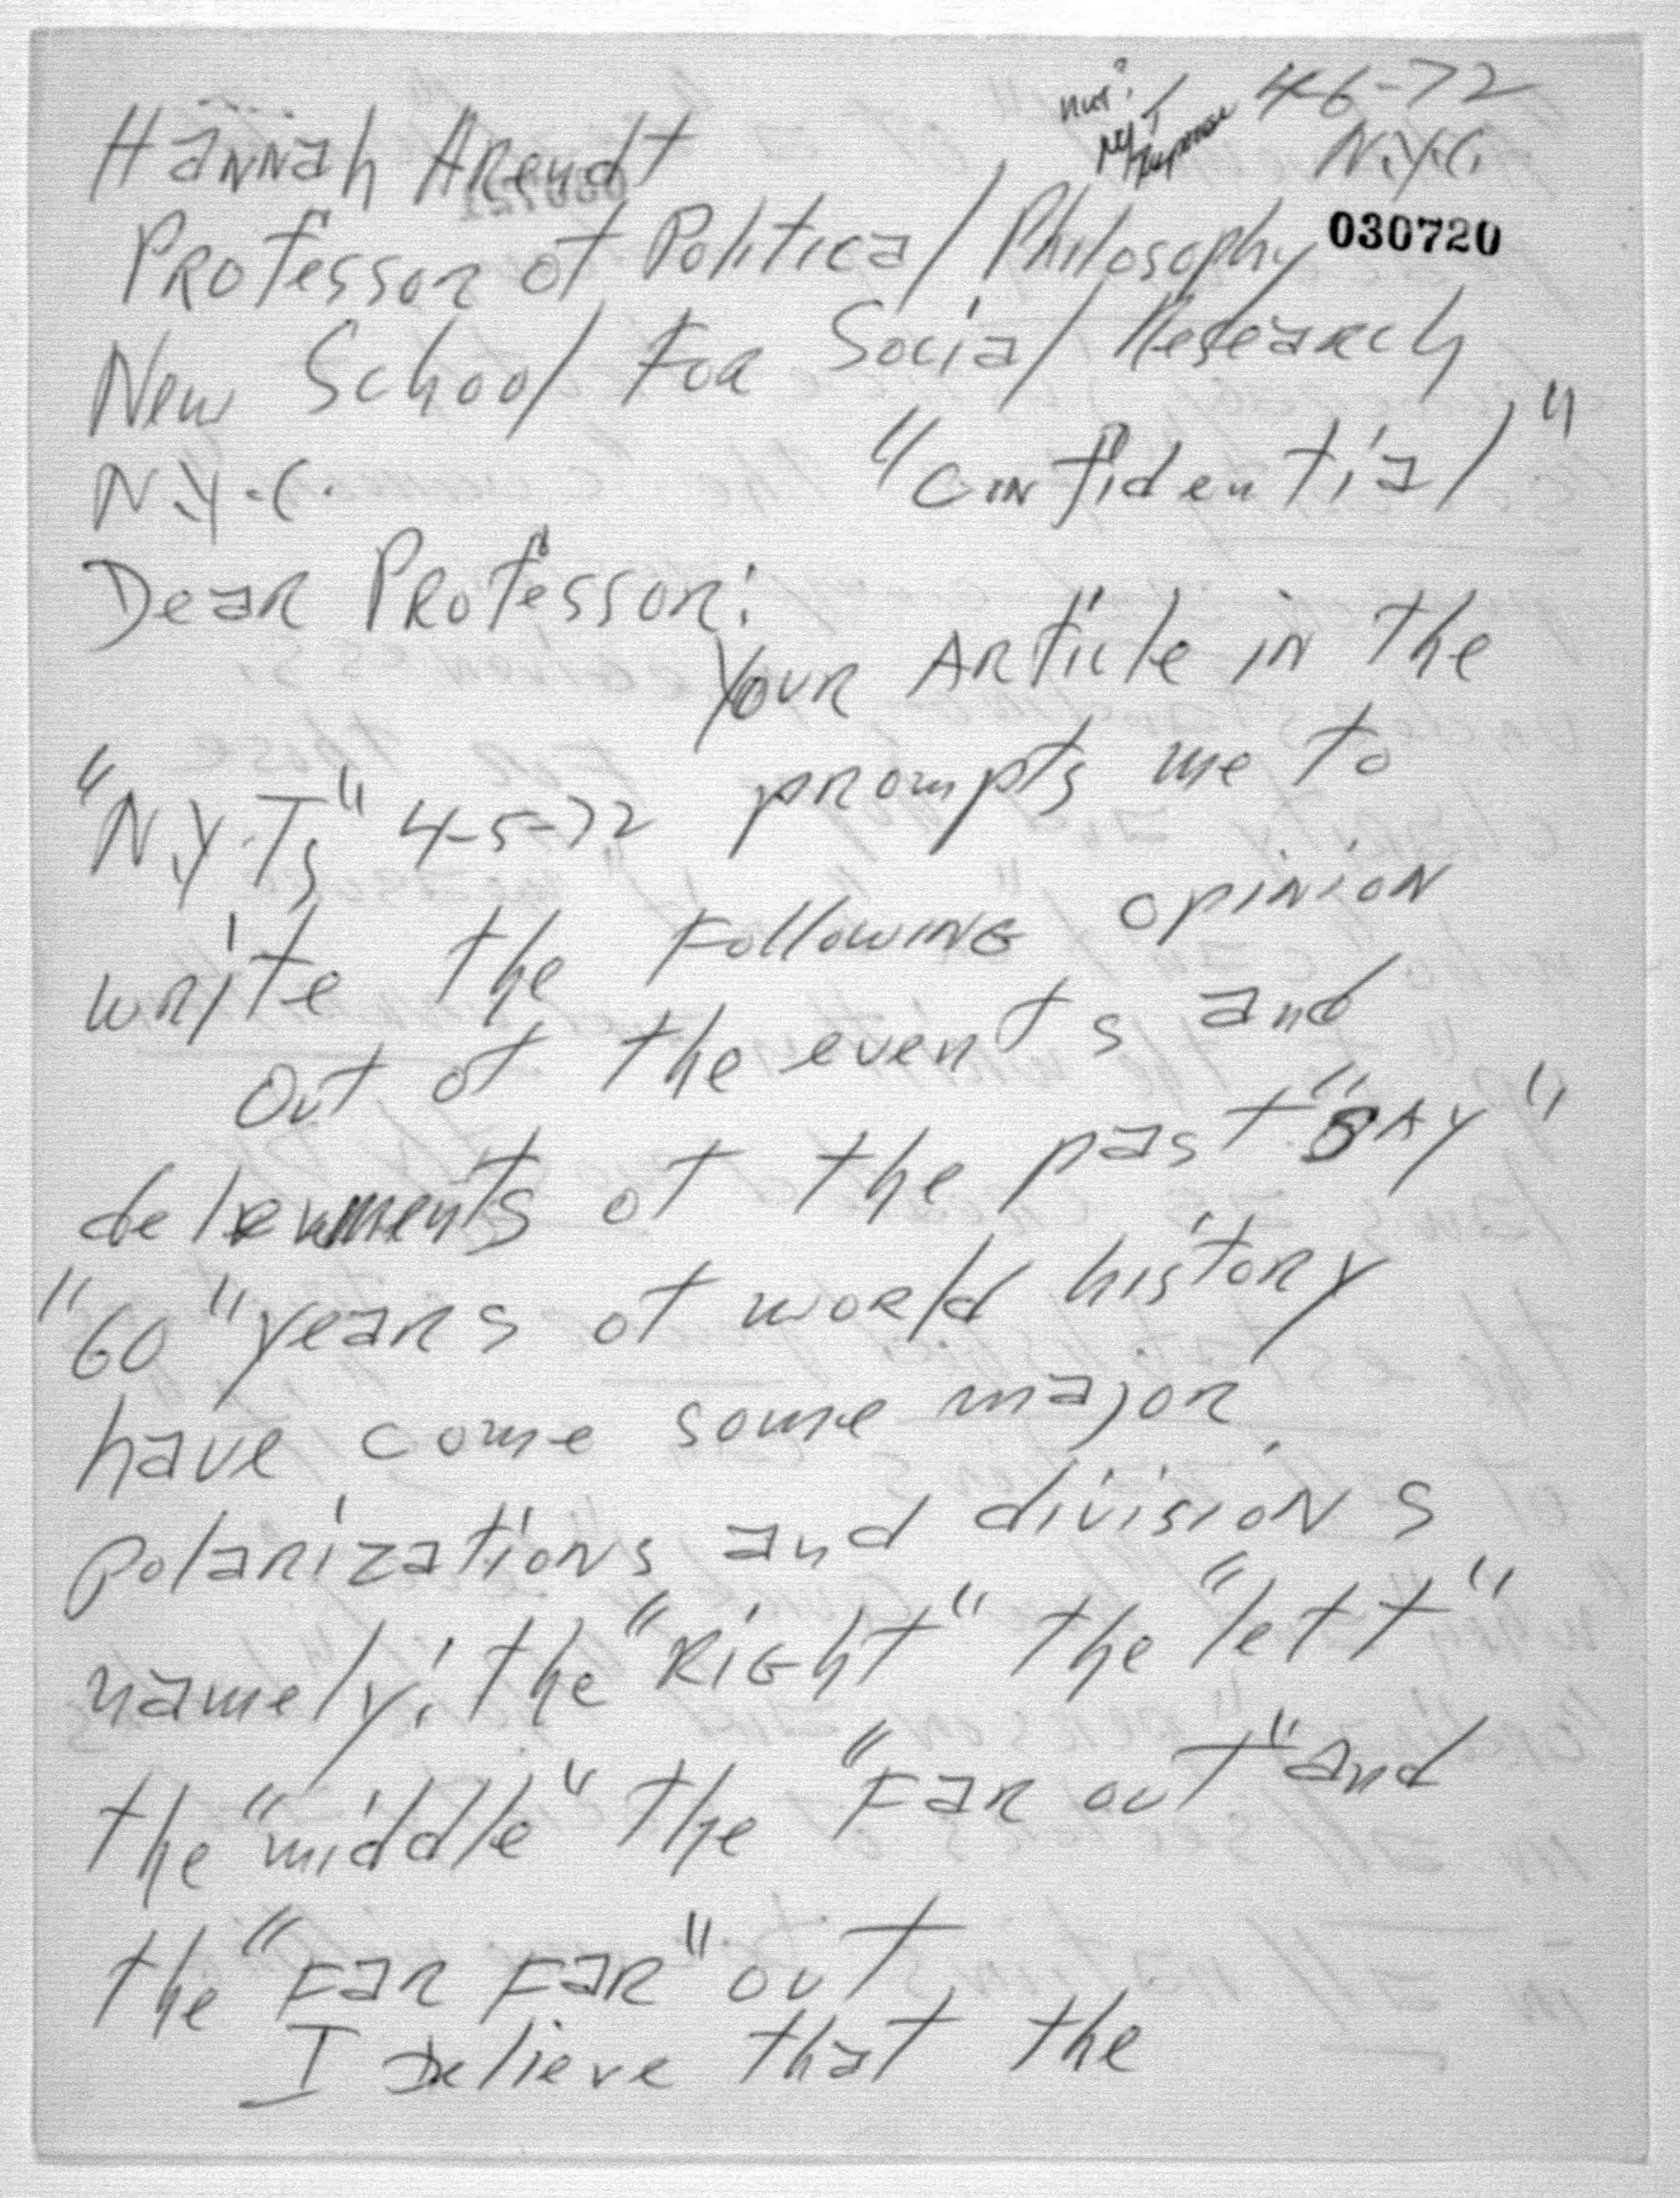 4-6-72
N.Y.C.
030720
Hannah Arendt
Professor of Political Philosophy
New School For Social Research
N.Y.C.
"Confidential"
Dear Professor:
Your Article in the
"N.Y.Ts" 4-5-72 prompts me to
write the Following opinion
Out of the events and
of the past "SAY"
"60" years of world history
have come some major
polarizations and divisions
namely: the "Right" the "left"
the "middle" the "Far out" and
the "Far Far" out
I believe that the